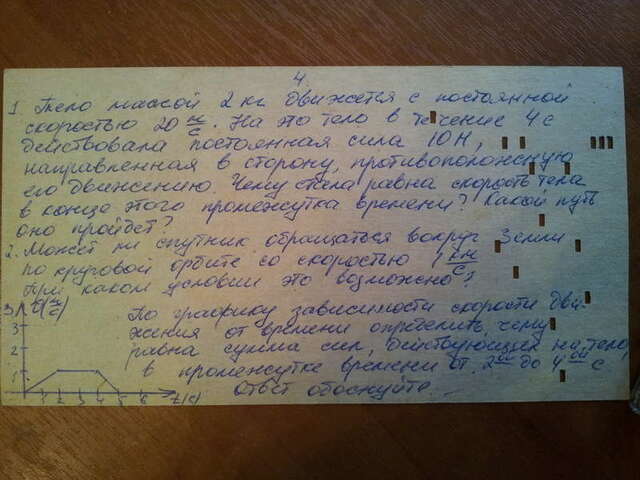 4.
1. Тело массой 2 кг движется с постоянной
скоростью 20 м/с. На это тело в течение 4 с
действовала постоянная сила 10 Н,
направленная в сторону, противоположную
его движению. Чему стала равна скорость тела
в конце этого промежутка времени? Какой путь
оно пройдет?
2. Может ли спутник обращаться вокруг Земли
по круговой орбите со скоростью 1 км/с?
При каком условии это возможно?
По графику зависимости скорости дви-
жения от времени определить, чему
равна сумма сил, действующих на тело,
в промежутке времени от 2ой до 4ой с
Ответ обоснуйте.
3
3
2
1
1 2 3 4 5 6 t(с)